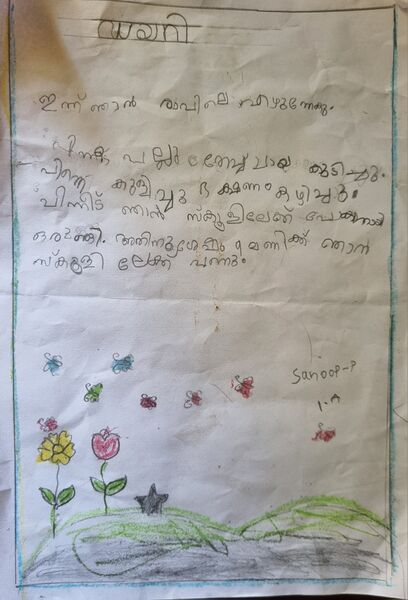 ഡയറി
ഇന്ന് ഞാൻ രാവിലെ എഴുന്നേറ്റു.
പിന്നെ പല്ലു തേച്ചു ചായ കുടിച്ചു.
പിന്നെ കുളിച്ചു ഭക്ഷണം കഴിച്ചു.
പിന്നീട് ഞാൻ സ്കൂളിലേക്ക് പോകുന്നതിനായി
ഒരുങ്ങി. അതിനുശേഷം 9 മണിക്ക് ഞാൻ
സ്കൂളി ലേക്ക് വന്നു.
Sanoop-P
1-A